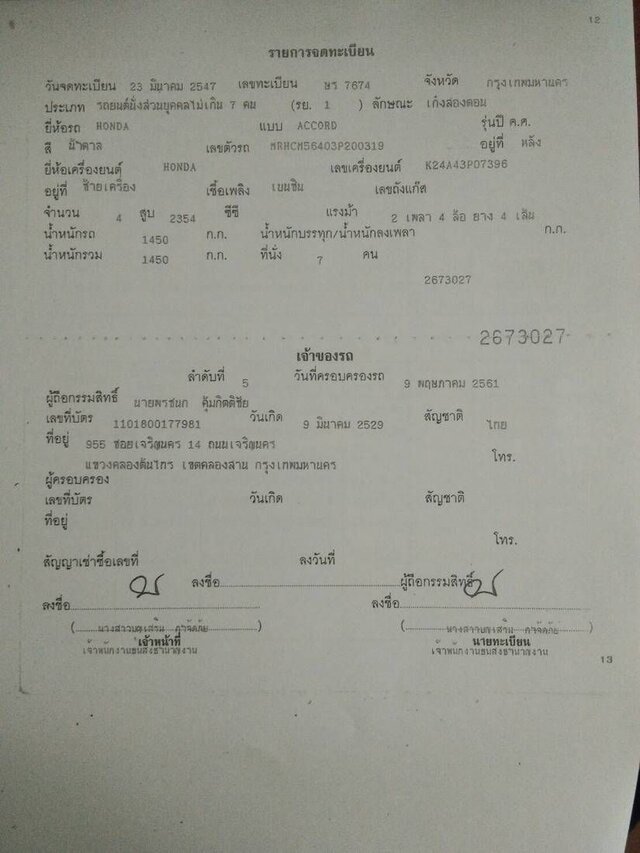 12
รายการจดทะเบียน
วันจดทะเบียน 23 มีนาคม 2547 เลขทะเบียน ษร 7674 จังหวัด กรุงเทพมหานคร
ประเภท รถยนต์นั่งส่วนบุคคลไม่เกิน 7 คน (รย. 1 ) ลักษณะ เก๋งสองตอน
ยี่ห้อรถ HONDA แบบ ACCORD รุ่นปี ค.ศ.
สี น้ำตาล เลขตัวรถ MRHCM56403P200319 อยู่ที่ หลัง
ยี่ห้อเครื่องยนต์ HONDA เลขเครื่องยนต์ K24A43P07396
อยู่ที่ ซ้ายเครื่อง เชื้อเพลิง เบนซิน เลขถังแก๊ส
จำนวน 4 สูบ 2354 ซีซี แรงม้า 2 เพลา 4 ล้อ ยาง 4 เส้น
น้ำหนักรถ 1450 ก.ก. น้ำหนักบรรทุก/น้ำหนักลงเพลา ก.ก.
น้ำหนักรวม 1450 ก.ก. ที่นั่ง 7 คน
2673027
2673027
เจ้าของรถ
ลำดับที่ 5 วันที่ครอบครองรถ 9 พฤษภาคม 2561
ผู้ถือกรรมสิทธิ์ นายพรชนก คุ้มกิตติชัย
เลขที่บัตร 1101800177981 วันเกิด 9 มีนาคม 2529 สัญชาติ ไทย
ที่อยู่ 955 ซอยเจริญนคร 14 ถนนเจริญนคร
แขวงคลองต้นไทร เขตคลองสาน กรุงเทพมหานคร โทร.
ผู้ครอบครอง
เลขที่บัตร วันเกิด สัญชาติ
ที่อยู่
โทร.
สัญญาเช่าซื้อเลขที่ ลงวันที่
ลงชื่อ ผู้ถือกรรมสิทธิ์
ลงชื่อ ลงชื่อ
เจ้าหน้าที่ นายทะเบียน
13